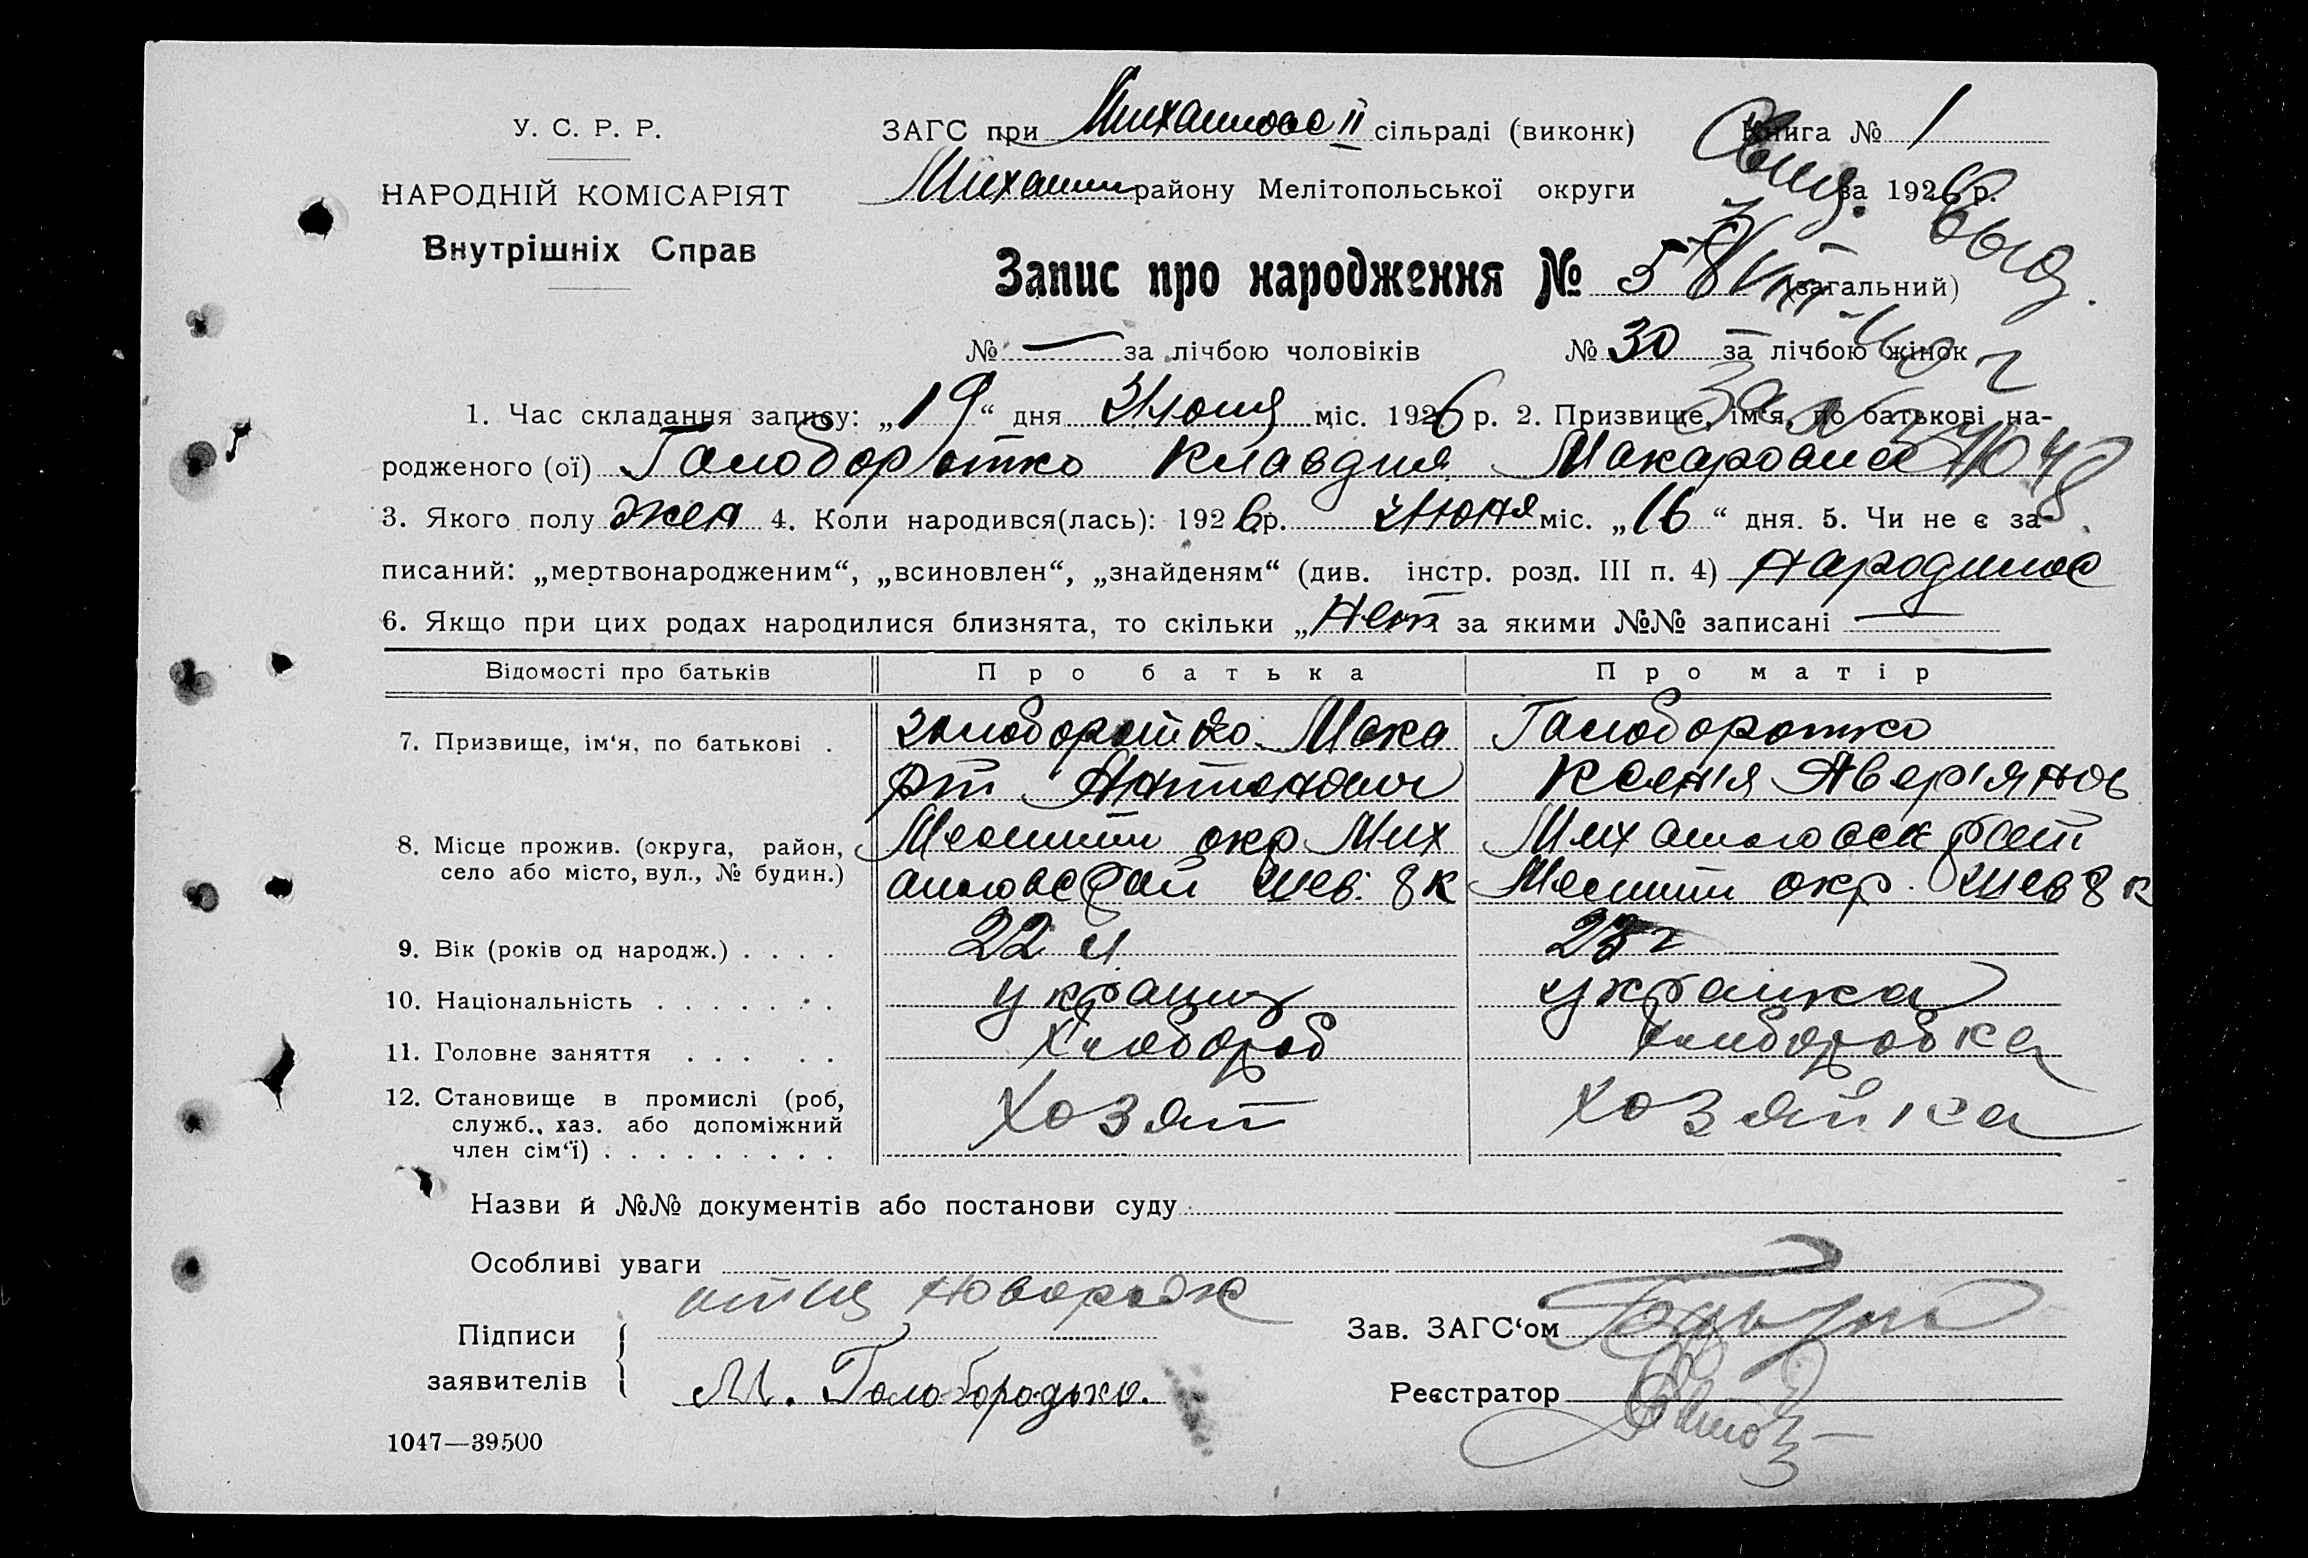 У. С. Р. Р.
НАРОДНІЙ КОМІСАРІЯТ
Внутрішніх Справ
ЗАГС при Михайловс II сільраді (виконк) Книга № 1
Михайл району Мелітопольської округи за 1926 р.
Свид. выд.
Запис про народження № 58 (загальний)
№ — за лічбою чоловіків № 30 за лічбою жінок
за №
1. Час складання запису: „19“ дня Июня міс. 1926 р. 2. Призвище, ім‘я, по батькові на-
родженого (ої) Голоборотко Клавдия Макаровна
3. Якого полу жен 4. Коли народився(лась): 1926 р. Июня міс. „16“ дня. 5. Чи не є за-
писаний: „мертвонародженим“, „всиновлен“, „знайденям“ (див. інстр. розд. III п. 4) народилас
6. Якщо при цих родах народилися близнята, то скільки „нет за якими №№ записані —
Відомості про батьків Про батька Про матір
7. Призвище, ім‘я, по батькові . Голоборотко Мака Голоборотко
Антонович Ксенія Аверіянов
8. Місце прожив. (округа, район, Мелит окр Мих Михайловск
село або місто, вул., № будин.) айловс рай Шев. 8 к Мелит окр. Шев 8 к
9. Вік (років од народж.) . . . . 22 л
10. Національність . . . . . . . украинц украінка
11. Головне заняття . . . . . Хлебороб хлиборобка
12. Становище в промислі (роб, Хозяин хозяйка
служб., хаз. або допоміжний
член сім‘ї) . . . . . . . . .
Назви й №№ документів або постанови суду
Особливі уваги
отец новорожд
Підписи Зав. ЗАГС‘ом
заявителів М. Голобородько. Реєстратор
1047—39500